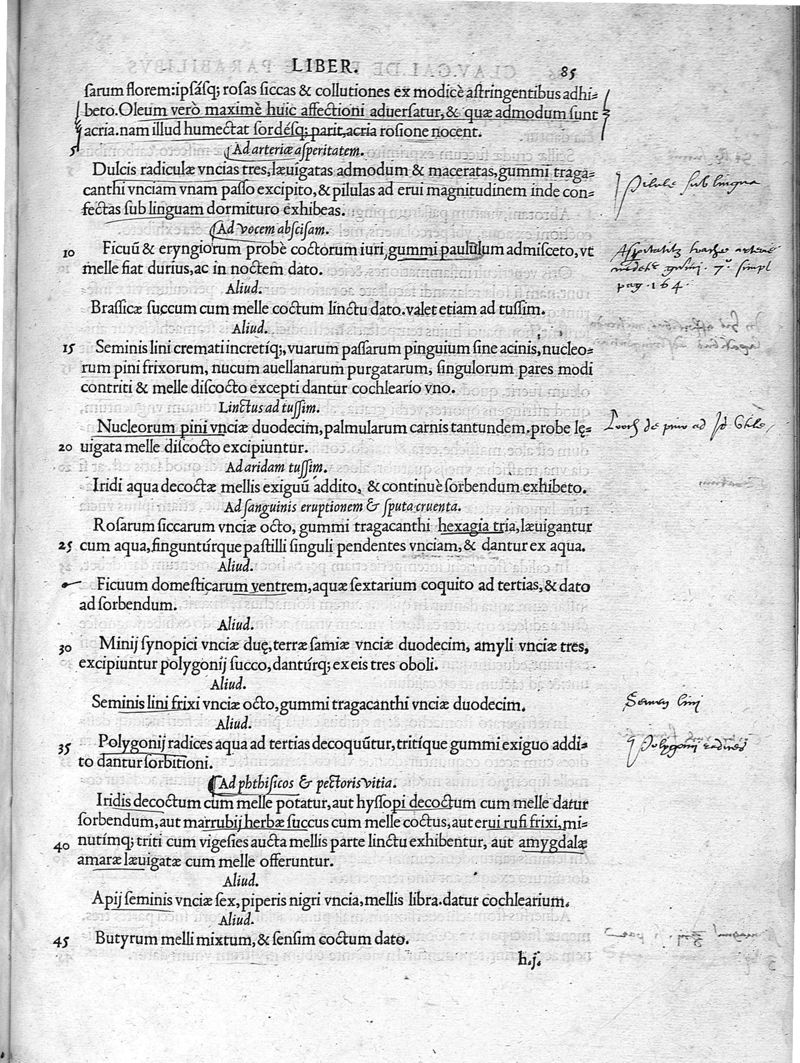 LIBER. 85
sarum florem: ipsásq; rosas siccas & collutiones ex modicè astringentibus adhi=
beto. Oleum verò maximè huic affectioni aduersatur, & quæ admodum sunt
acria. nam illud humectat sordésq; parit, acria rosione nocent.
5 Ad arteriæ asperitatem.
Dulcis radiculæ vncias tres, læuigatas admodum & maceratas, gummi traga=
canthi vnciam vnam passo excipito, & pilulas ad erui magnitudinem inde con=
fectas sub linguam dormituro exhibeas.
Pilulæ sub lingua
Ad vocem abscisam.
10 Ficuū & eryngiorum probè coctorum iuri, gummi paululum admisceto, vt
melle fiat durius, ac in noctem dato.
pag. 164.
Aliud.
Brassicæ succum cum melle coctum linctu dato. valet etiam ad tussim.
Aliud.
15 Seminis lini cremati incretíq;, vuarum passarum pinguium sine acinis, nucleo=
rum pini frixorum, nucum auellanarum purgatarum, singulorum pares modi
contriti & melle discocto excepti dantur cochleario vno.
Linctus ad tussim.
Nucleorum pini vnciæ duodecim, palmularum carnis tantundem. probe lę=
20 uigata melle discocto excipiuntur.
de pino ad
Ad aridam tussim.
Iridi aqua decoctæ mellis exiguū addito, & continuè sorbendum exhibeto.
Ad sanguinis eruptionem & sputa cruenta.
Rosarum siccarum vnciæ octo, gummi tragacanthi hexagia tria, læuigantur
25 cum aqua, fingunturque pastilli singuli pendentes vnciam, & dantur ex aqua.
Aliud.
Ficuum domesticarum ventrem, aquæ sextarium coquito ad tertias, & dato
ad sorbendum.
Aliud.
30 Minij synopici vnciæ duę, terræ samiæ vnciæ duodecim, amyli vnciæ tres,
excipiuntur polygonij succo, dantúrq; ex eis tres oboli.
Aliud.
Seminis lini frixi vnciæ octo, gummi tragacanthi vnciæ duodecim.
Semen lini
Aliud.
35 Polygonij radices aqua ad tertias decoquūtur, tritíque gummi exiguo addi=
to dantur sorbitioni.
Polygonij radices
Ad phthisicos & pectoris vitia.
Iridis decoctum cum melle potatur, aut hyssopi decoctum cum melle datur
sorbendum, aut marrubij herbæ succus cum melle coctus, aut erui rufi frixi, mi=
40 nutímq; triti cum vigesies aucta mellis parte linctu exhibentur, aut amygdalæ
amaræ læuigatæ cum melle offeruntur.
Aliud.
Apij seminis vnciæ sex, piperis nigri vncia, mellis libra. datur cochlearium.
Aliud.
45 Butyrum melli mixtum, & sensim coctum dato.
h.j.